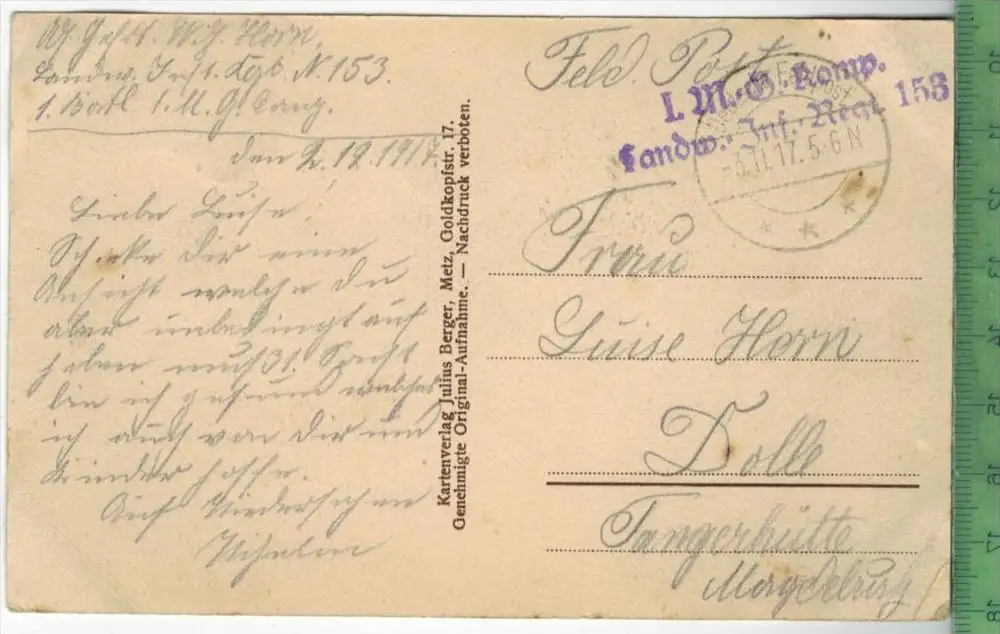 Horn,
Landw. Inft. Rgt. N. 153.
1. Batl 1. M. G. Comp.
den 2.12.1917.
Liebe Luise!
Schicke dir eine
Ansicht welche du
aber unbedingt auf
heben mußt. Sonst
bin ich gesund welches
ich auch von dir und
Kinder hoffe.
Auf Wiedersehen
Wilhelm
Kartenverlag Julius Berger, Metz, Goldkopfstr. 17.
Genehmigte Original-Aufnahme. — Nachdruck verboten.
Feld. Post
I. M.-G.-Komp.
Landw.-Inf.-Regt. 153
3.11.17. 5-6 N
Frau
Luise Horn
Dolle
Tangerhütte
Magdeburg